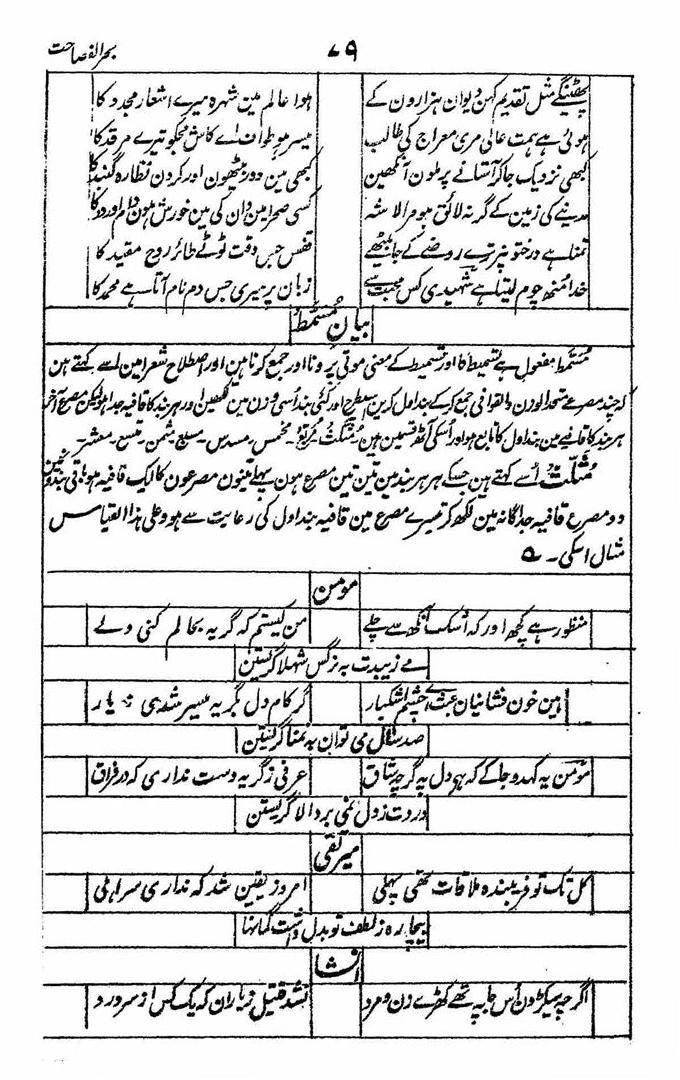 ۷۹
بحر الفصاحت
پھٹینگے مثل تقدیم کہن دیوان ہزارون کے
ہوا عالم مین شہرہ میرے اشعار مجدد کا
ہوئی ہے ہمت عالی مری معراج کی طالب
میسر ہو طواف اے کاش مجکو تیرے مرقد کا
کبھی نزدیک جا کر آستانے پر ملون آنکھین
کبھی مین دور بیٹھون اور کردن نظارہ گنبد کا
مدینے کی زمین کے گر نہ لائق ہو مرا لاشہ
کسی صحرا مین وان کی مین خورش ہون دام اور دد کا
تمنا ہے درختو نپر ترے روضے کے جا بیٹھے
قفس جس وقت ٹوٹے طائر روح مقید کا
خدا منھ چوم لیتا ہے شہیدی کس محبت سے
زبان پر میری جس دم نام آتا ہے محمد کا
بیان مُسَمَّط
مُسَمَّط مفعول ہے تسمیط کا اور تسمیط کے معنی موتی پرونا اور جمع کرنا ہین اور اصطلاح شعرا مین اسے کہتے ہین
کہ چند مصرعے متحد الوزن والقوافی جمع کر کے بند اول کرین اسیطرح اور کئی بند اُسی وزن مین لکھین اور ہر بند کا قافیہ جدا ہو لیکن مصرع آخر
ہر بند کا قافیے مین بند اول کا تابع ہو اور اُسکی آٹھ قسمین ہین مُثَلَّث مُرَبَّع۔ مخمس۔ مسدس۔ مسبع۔ مثمن۔ متسع۔ معشر۔
مُثَلَّث اُسے کہتے ہین جسکے ہر ہر بند مین تین تین مصرع ہون پہلے تینون مصرعون کا ایک قافیہ ہو باقی بندونمین
دو مصرع قافیہ جداگانہ مین لکھ کر تیسرے مصرع مین قافیہ بند اول کی رعایت سے ہو وعلی ہذا القیاس
مثال اسکی۔
مومن
منظور ہے کچھ اور کہ اشک آنکھ سے چلے
من کیستم کہ گریہ بحالم کنی ولے
مے زیبدت بہ نرگس شہلا گریستن
این خون فشانیان عبث اے چشم اشکبار
گر کام دل بگریہ میسر شدی ز یار
صد سال می توان بہ تمنا گریستن
مومن یہ کہدو جا کے کہ ہے دل پہ گرچہ شاق
عرفی ز گریہ دست نداری کہ در فراق
دردت ز دل نمی برد الا گریستن
میر تقی
کل تک تو فریبندہ ملاقات تھی پہلی
امروز یقین شد کہ نداری سر اہلی
بیچارہ ز لطف تو بدل داشت گمانہا
انشا
اگرچہ سیکڑون اُس جا پہ تھے کھڑے زن و مرد
نشد قتیل ز یاران کہ یک کس از سر درد